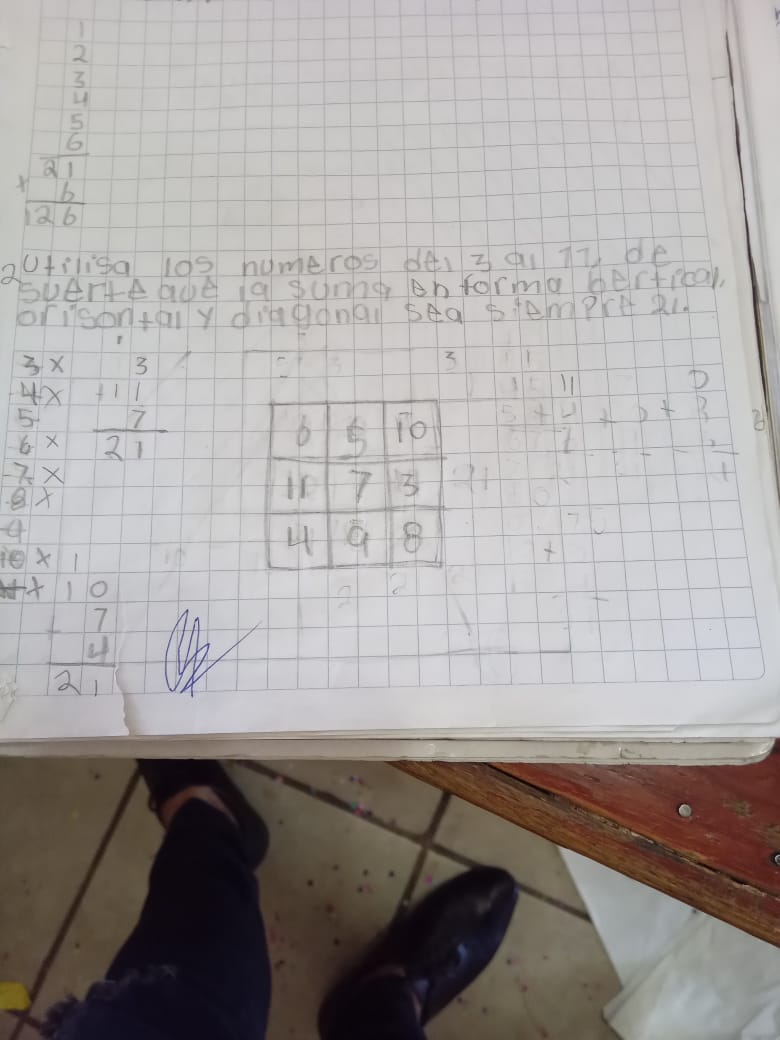 1
2
3
4
5
6
21
x 6
126
2 Utilisa los numeros del 3 al 11, de
suerte que la suma en forma bertical,
orisontal y diagonal sea siempre 21.
3 x
4 x
5
6 x
7 x
8 x
9
10 x
11 x
3
+11
7
21
6 5 10
11 7 3
4 9 8
1
10
7
4
21
3
11